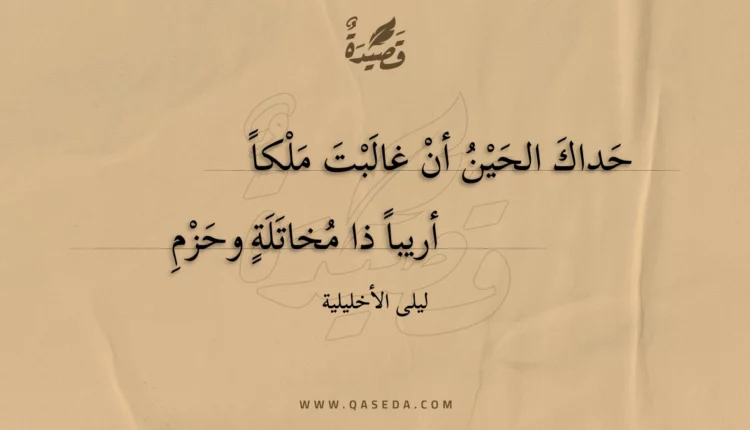 قَصِيْدَةٌ
حَداكَ الحَيْنُ أنْ غالَبْتَ مَلْكاً
أريباً ذا مُخاتَلَةٍ وحَزْمِ
ليلى الأخليلية
WWW.QASEDA.COM